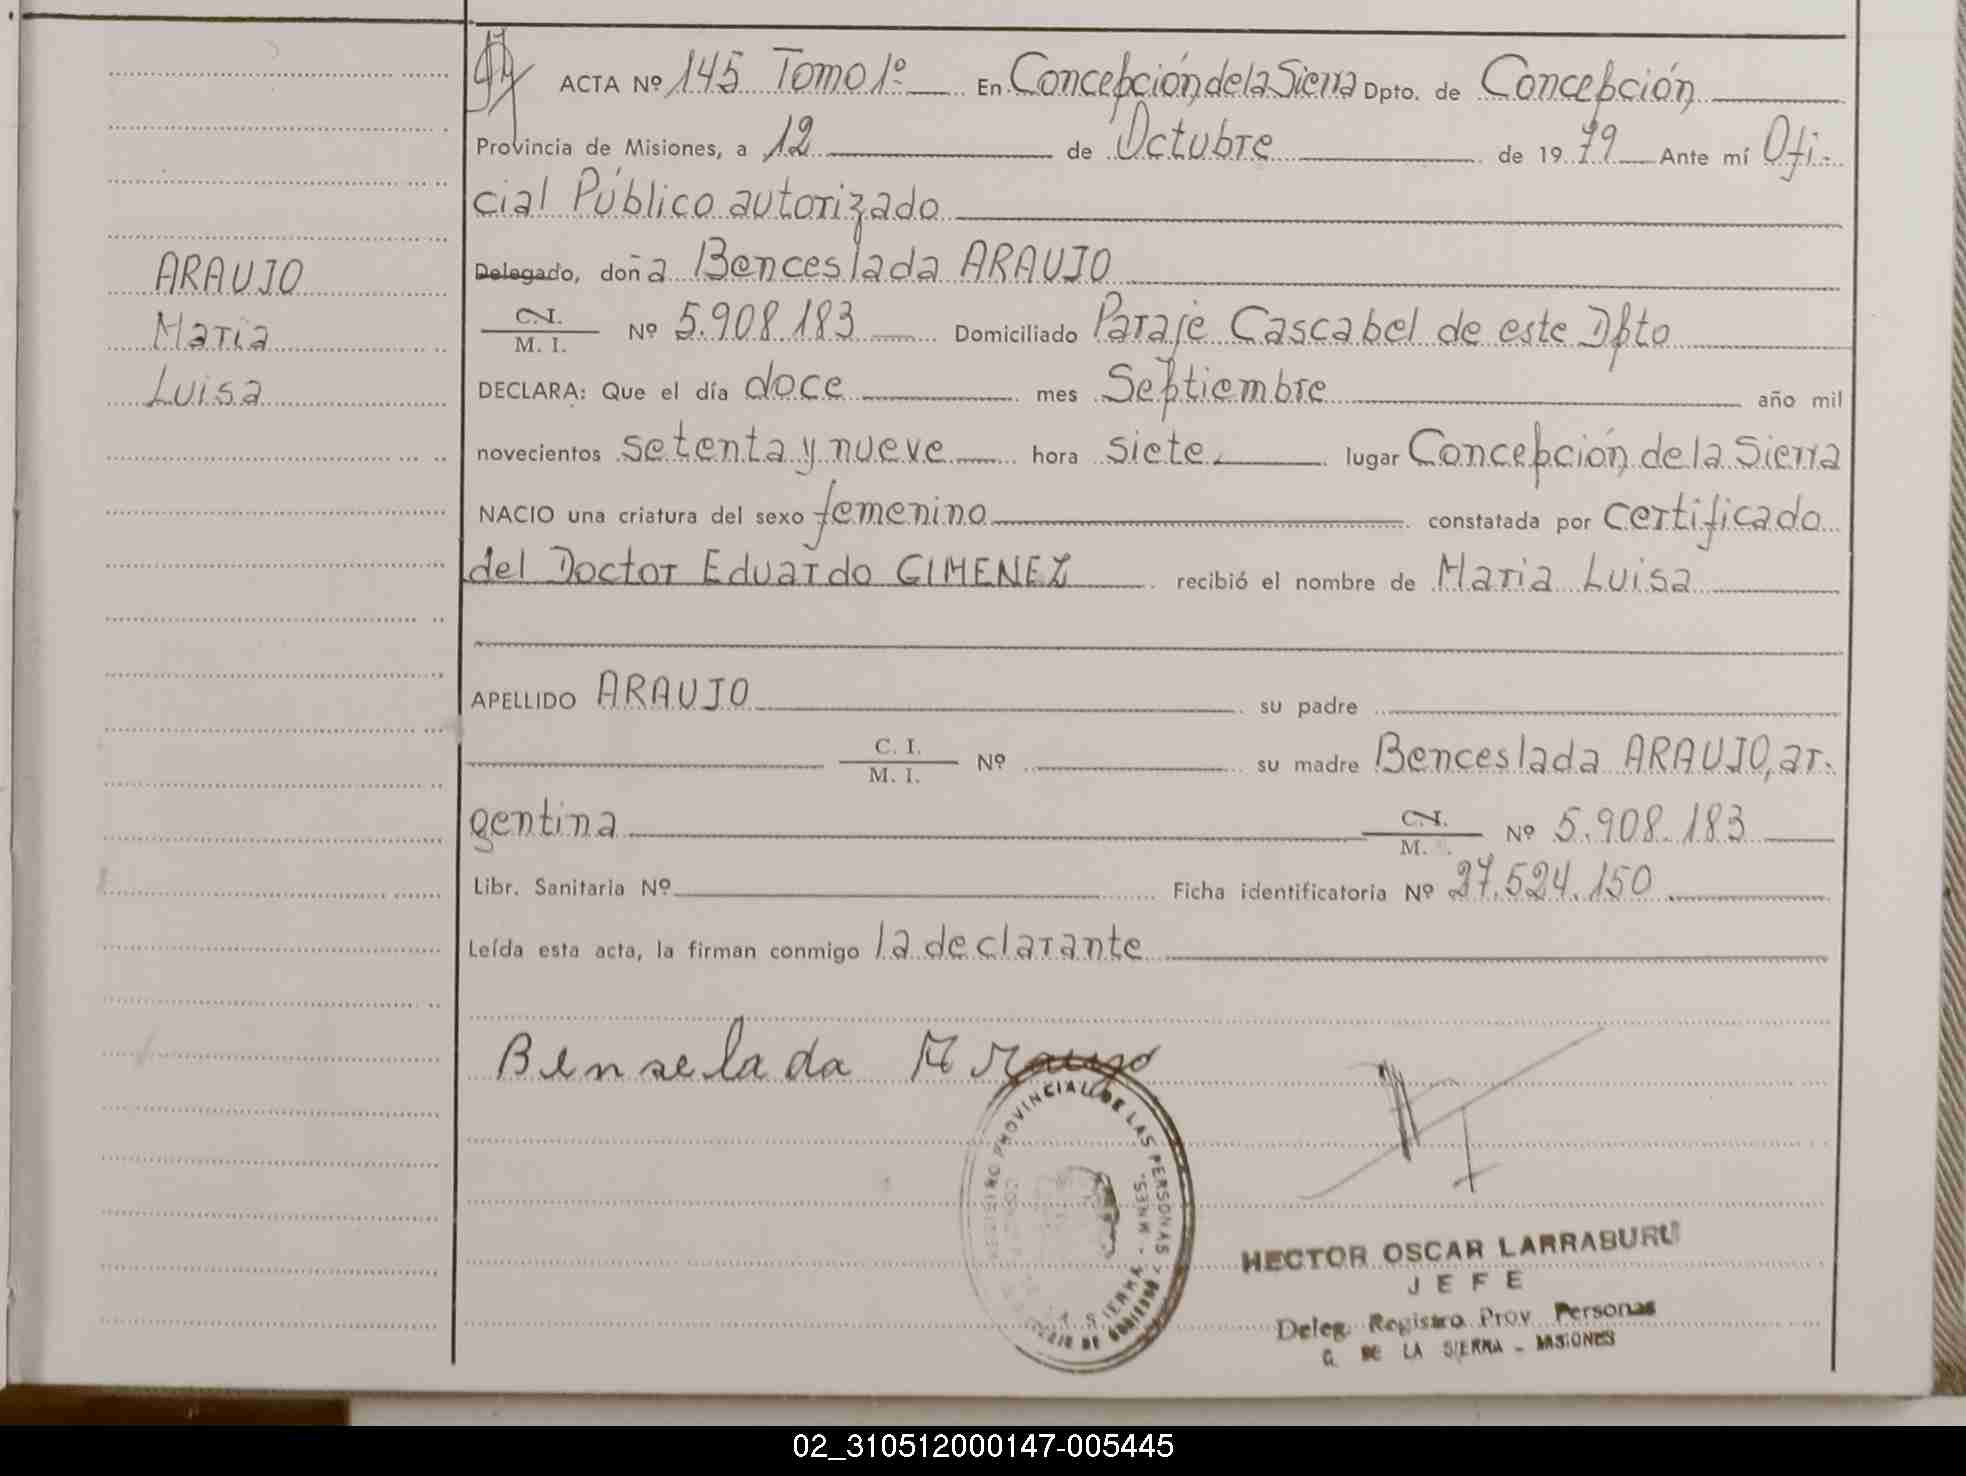 ACTA Nº 145 Tomo 1º En Concepción de la Sierra Dpto. de Concepción
Provincia de Misiones, a 12 de Octubre de 1979 Ante mí Ofi-
cial Público autorizado
ARAUJO
Delegado, doña Benceslada ARAUJO
Maria
C. I. M. I. Nº 5.908.183 Domiciliado Paraje Cascabel de este Dpto
Luisa
DECLARA: Que el día doce mes Septiembre año mil
novecientos setenta y nueve hora siete lugar Concepción de la Sierra
NACIO una criatura del sexo femenino constatada por certificado
del Doctor Eduardo GIMENEZ recibió el nombre de Maria Luisa
APELLIDO ARAUJO su padre
C. I. M. I. Nº su madre Benceslada ARAUJO, ar-
gentina C. I. M. Nº 5.908.183
Libr. Sanitaria Nº Ficha identificatoria Nº 27.524.150
Leída esta acta, la firman conmigo la declarante
Benselada Araujo
REGISTRO PROVINCIAL DE LAS PERSONAS
SIERRA - MNES.
HECTOR OSCAR LARRABURU
JEFE
Deleg. Registro Prov Personas
C. DE LA SIERRA - MISIONES
02_310512000147-005445